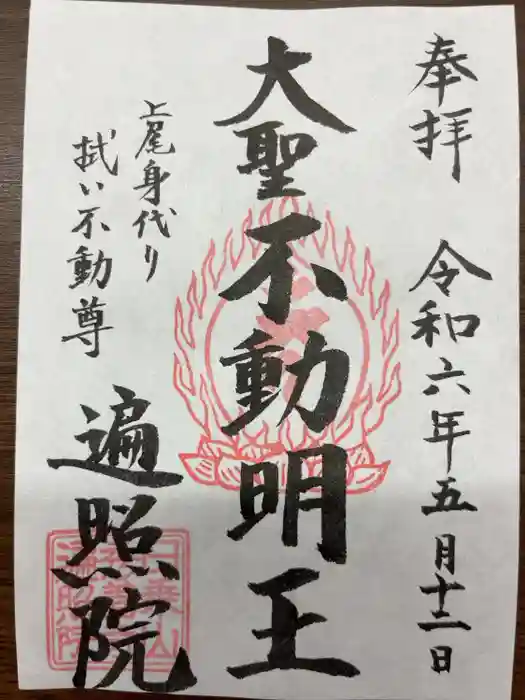 奉拝 令和六年五月十二日
大聖不動明王
上尾身代り
拭い不動尊
遍照院